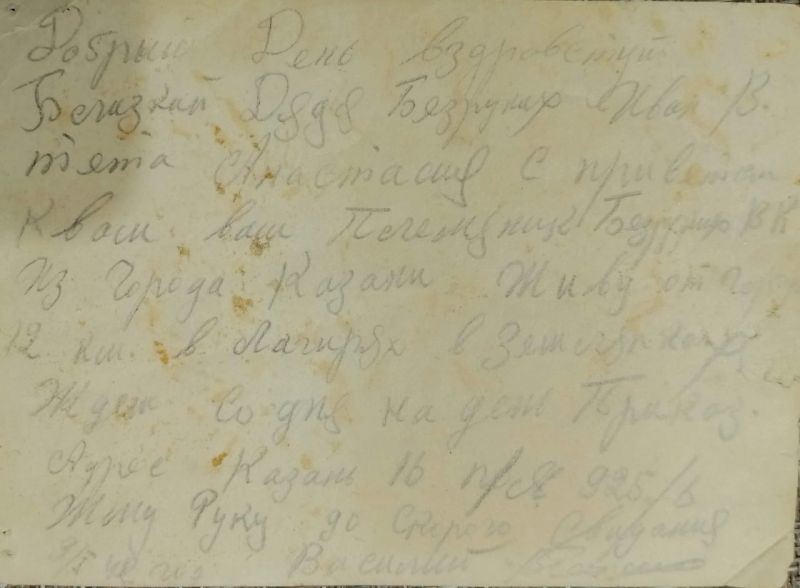 Добрый День вздровствуй
Белизкай Дядя Безруких Иван В.
тета Анастасия С приветом
К вам. ваш Пелемяник Безруких ВК
Из Города Казани. Живу от
12 км. в Лагирях в Землянках
Ждем со дня на день Приказ.
Адрес Казань 16 п/я 925/6
Жму Руку до Скорого Свидания
Василий